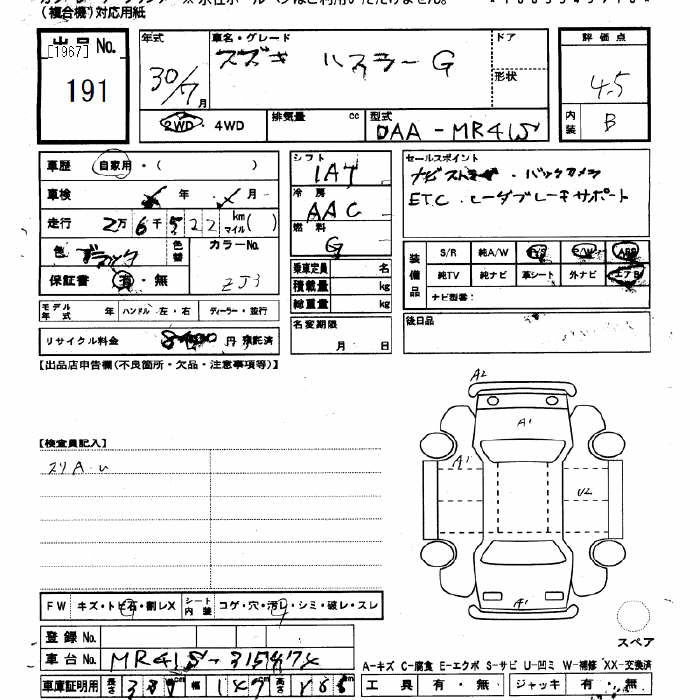 (複合機)対応用紙
出品 No.
[1967]
191
年式
30/7
月
車名・グレード
スズキ ハスラー G
ドア
形状
2WD・4WD
排気量 cc
型式
DAA-MR41S
評価点
4.5
内装
B
車歴 自家用・( )
車検 年 月
走行 2万6千522 km マイル( )
色 ブラック
色替
カラーNo.
ZJ3
保証書 有・無
モデル年式 年 ハンドル 左・右 ディーラー・並行
リサイクル料金 円 預託済
シフト
IAT
冷房
AAC
燃料
G
乗車定員 名
積載量 kg
総重量 kg
名変期限
月 日
セールスポイント
ナビ ・バックカメラ
ETC・レーダブレーキサポート
装備品
S/R 純A/W P/S P/W ABS
純TV 純ナビ 革シート 外ナビ エアB
ナビ型番:
後日品
【出品店申告欄(不良箇所・欠品・注意事項等)】
【検査員記入】
スリA・U
A2
A1
A1
U2
A1
スペア
FW キズ・トビ石・割レX シート内装 コゲ・穴・汚レ・シミ・破レ・スレ
登録 No.
車台 No. MR41S-315874
車庫証明用 長さ cm 幅 147 cm 高さ cm
A-キズ C-腐食 E-エクボ S-サビ U-凹ミ W-補修 XX-交換済
工具 有・無 ジャッキ 有・無